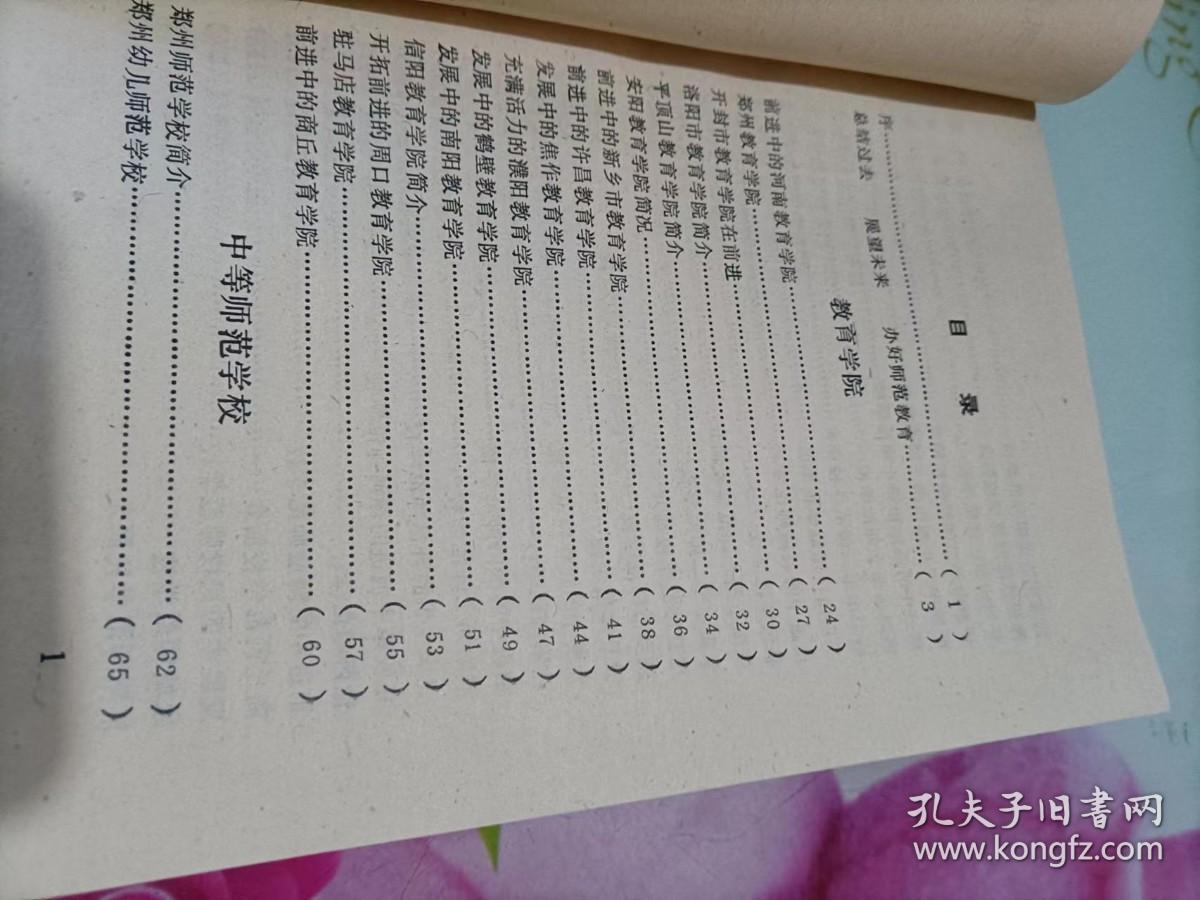 目 录
序……………………( 1 )
总结过去 展望未来 办好师范教育……………( 3 )
教育学院
前进中的河南教育学院……………………( 24 )
郑州教育学院……………………( 27 )
开封市教育学院在前进……………………( 30 )
洛阳市教育学院简介……………………( 32 )
平顶山教育学院简介……………………( 34 )
安阳教育学院简况……………………( 36 )
前进中的新乡市教育学院……………………( 38 )
前进中的许昌教育学院……………………( 41 )
发展中的焦作教育学院……………………( 44 )
充满活力的濮阳教育学院……………………( 47 )
发展中的鹤壁教育学院……………………( 49 )
发展中的南阳教育学院……………………( 51 )
信阳教育学院简介……………………( 53 )
开拓前进的周口教育学院……………………( 55 )
驻马店教育学院……………………( 57 )
前进中的商丘教育学院……………………( 60 )
中等师范学校
郑州师范学校简介……………………( 62 )
郑州幼儿师范学校……………………( 65 )
1
孔夫子旧书网
www.kongfz.com